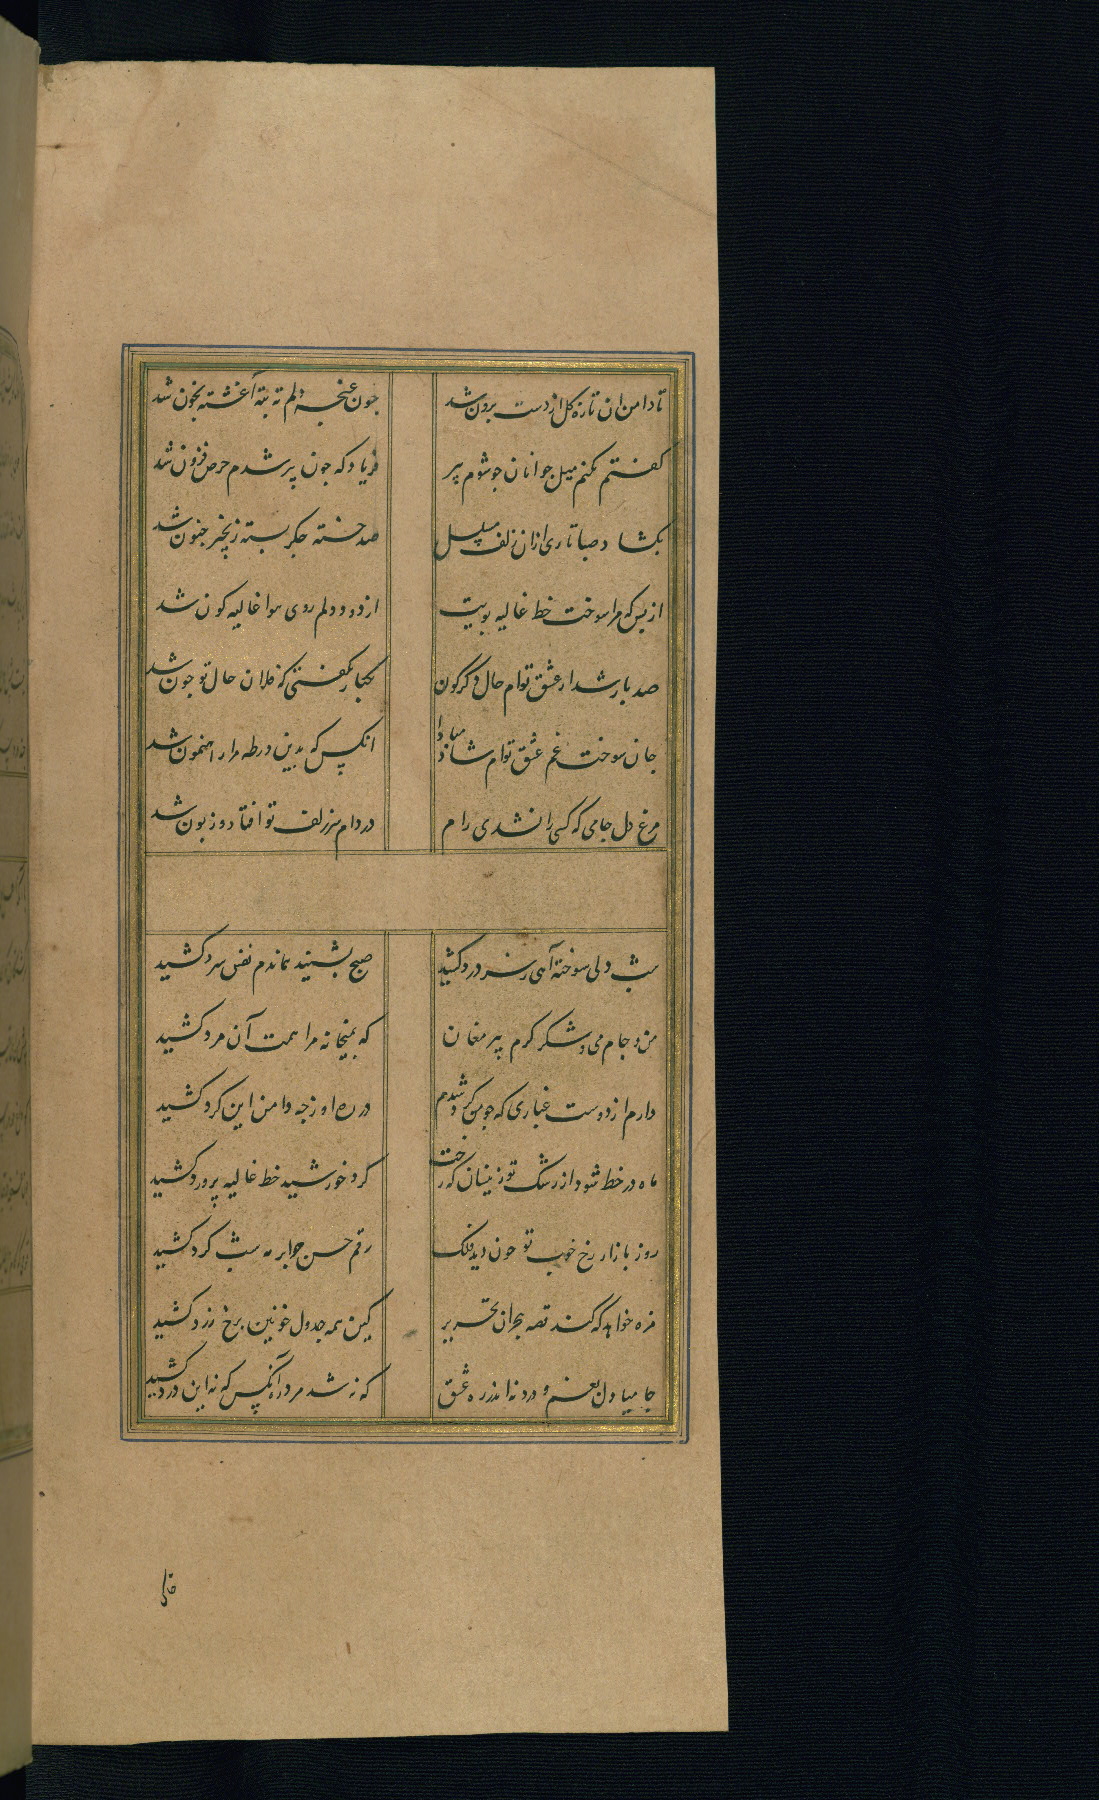 تا دامن ان تازه کل از دست برون شد
جون غنجه دلم ته بته آغشته بخون شد
کفتم نکنم میل جوانان جو شوم پیر
فریاد که جون پیر شدم حرص فزون شد
بکشاد صبا تاری ازان زلف مسلسل
صد خسته جکر بسته زنجیر جنون شد
از بس که مرا سوخت خط غالیه بویت
از دود دلم روی هوا غالیه کون شد
صد بار شد از عشق توام حال دکرکون
یکبار نکفتی که فلان حال تو جون شد
جان سوخت غم عشق توام شاد مبادا
انکس که بدین ورطه مرا راهنمون شد
مرغ دل جامی که کسی را نشدی رام
در دام سر زلف تو افتاد و زبون شد
شب دلی سوخته آهی ز سر درد کشید
صبح بشنید هماندم نفس سرد کشید
من و جام می و شکر کرم پیر مغان
که بمیخانه مرا همت آن مرد کشید
دارم از دوست غباری که جو من کرد شدم
در ره او ز جه دامن این کرد کشید
ماه در خط شود از رشک تو زینسان که رخت
کرد خورشید خط غالیه پرورد کشید
روز بازار رخ خوب تو جون دید فلک
رقم حسن جوابر مه شب کرد کشید
مژه خواهد که کند قصه هجران تحریر
کین همه جدول خونین برخ زرد کشید
جامیا دل بغم و درد نه اندر ره عشق
که نه شد مرد ره آنکس که نه این درد کشید